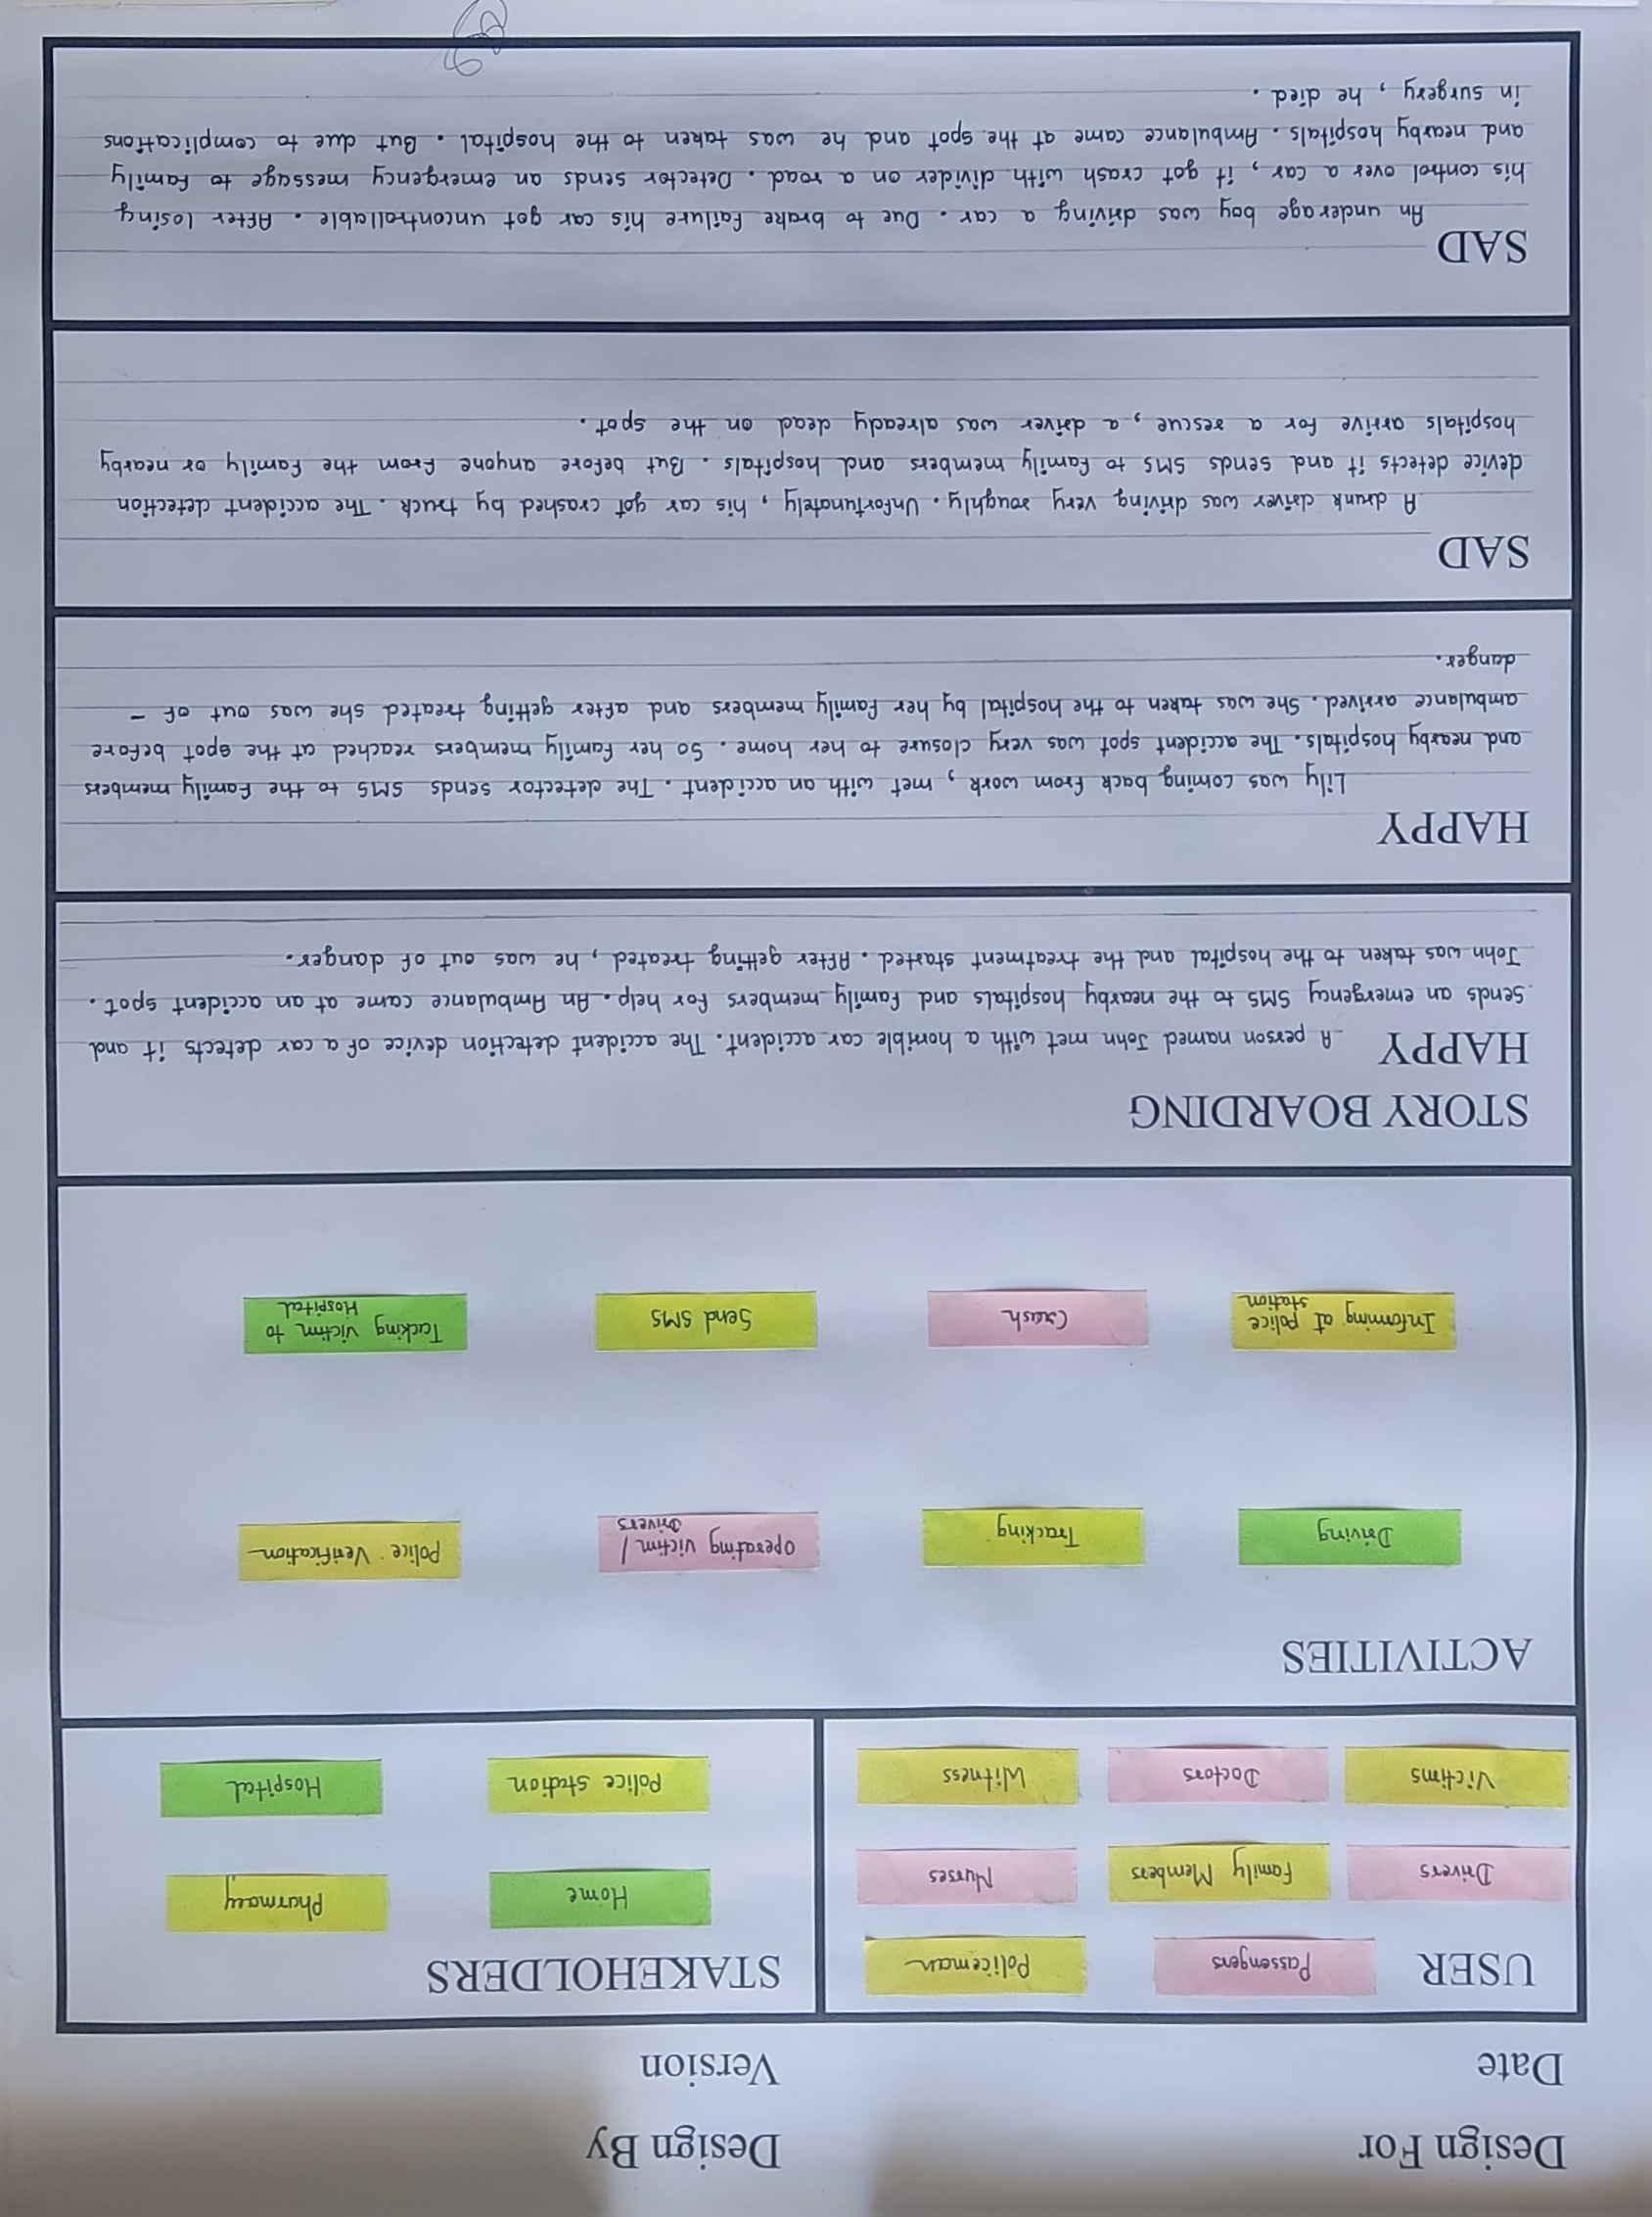 Design For
Design By
Date
Version
USER
Passengers
Policeman
Drivers
Family Members
Nurses
Victims
Doctors
Witness
STAKEHOLDERS
Home
Pharmacy
Police Station
Hospital
ACTIVITIES
Driving
Tracking
Operating victim /
Drivers
Police Verification
Informing at police
station
Crash
Send SMS
Tacking victim to
Hospital
STORY BOARDING
HAPPY A person named John met with a horrible car accident. The accident detection device of a car detects it and
sends an emergency SMS to the nearby hospitals and family members for help. An Ambulance came at an accident spot.
John was taken to the hospital and the treatment started. After getting treated, he was out of danger.
HAPPY
Lily was coming back from work, met with an accident. The detector sends SMS to the family members
and nearby hospitals. The accident spot was very closure to her home. So her family members reached at the spot before
ambulance arrived. She was taken to the hospital by her family members and after getting treated she was out of -
danger.
SAD
A drunk driver was driving very roughly. Unfortunately, his car got crashed by truck. The accident detection
device detects it and sends SMS to family members and hospitals. But before anyone from the family or nearby
hospitals arrive for a rescue, a driver was already dead on the spot.
SAD
An underage boy was driving a car. Due to brake failure his car got uncontrollable. After losing
his control over a car, it got crash with divider on a road. Detector sends an emergency message to family
and nearby hospitals. Ambulance came at the spot and he was taken to the hospital. But due to complications
in surgery, he died.